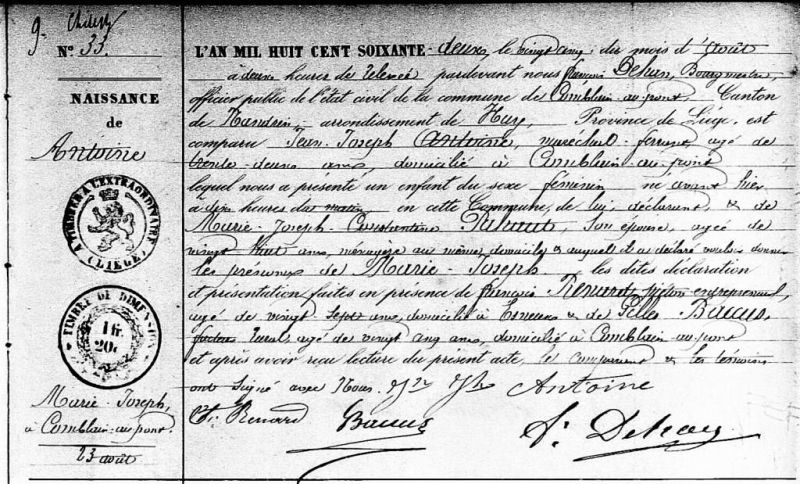 9
N° 33.
NAISSANCE
de
Antoine
A TIMBRER A L'EXTRAORDINAIRE
(LIEGE)
TIMBRE DE DIMENSION
1 fr
20c
Marie-Joseph,
à Comblain-au-pont.
23 août
L'AN MIL HUIT CENT SOIXANTE-deux, le vingt cinq du mois d'Août
à deux heures de relevée pardevant nous françois Bourgmestre,
officier public de l'état civil de la commune de Comblain-au-pont, Canton
de Nandrin, arrondissement de Huy, Province de Liége, est
comparu Jean-Joseph Antoine, maréchal-ferrant, agé de
trente-deux ans, domicilié à Comblain-au-pont
lequel nous a présenté un enfant du sexe féminin né avant hier
à dix heures du matin en cette Commune, de lui, déclarant, & de
Marie-Joseph-Constantine son épouse, agée de
vingt huit ans, ménagère au même domicile & auquel il a déclaré vouloir donner
les prénoms de Marie-Joseph les dites déclaration
et présentation faites en présence de françois Renard, entrepreneur,
agé de vingt-sept ans, domicilié à Esneux & de Gilles Baccus,
facteur rural, agé de vingt cinq ans, domicilié à Comblain-au-pont
et après avoir reçu lecture du présent acte, le comparant & les témoins
ont signé avec Nous. Jn Jh Antoine
F. Renard Baccus f.